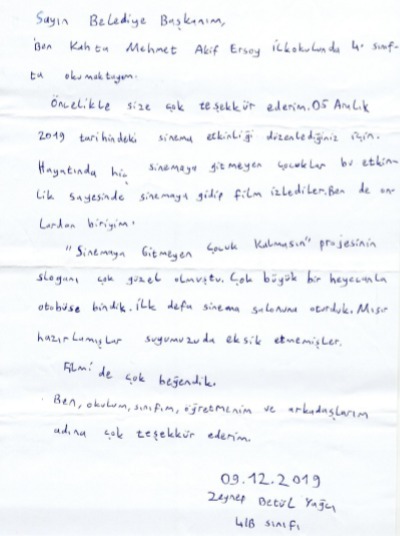 Sayın Belediye Başkanım,
Ben Kahta Mehmet Akif Ersoy İlkokulunda 4. sınıf-
ta okumaktayım.
Öncelikle size çok teşekkür ederim. 05 Aralık
2019 tarihindeki sinema etkinliği düzenlediğiniz için.
Hayatında hiç sinemaya gitmeyen çocuklar bu etkin-
lik sayesinde sinemaya gidip film izlediler. Ben de on-
lardan biriyim.
"Sinemaya Gitmeyen Çocuk Kalmasın" projesinin
sloganı çok güzel olmuştu. Çok büyük bir heyecanla
otobüse bindik. İlk defa sinema salonuna oturduk. Mısır
hazırlamışlar suyumuzuda eksik etmemişler.
Filmi de çok beğendik.
Ben, okulum, sınıfım, öğretmenim ve arkadaşlarım
adına çok teşekkür ederim.
09.12.2019
Zeynep Betül Yağcı
4/B sınıfı